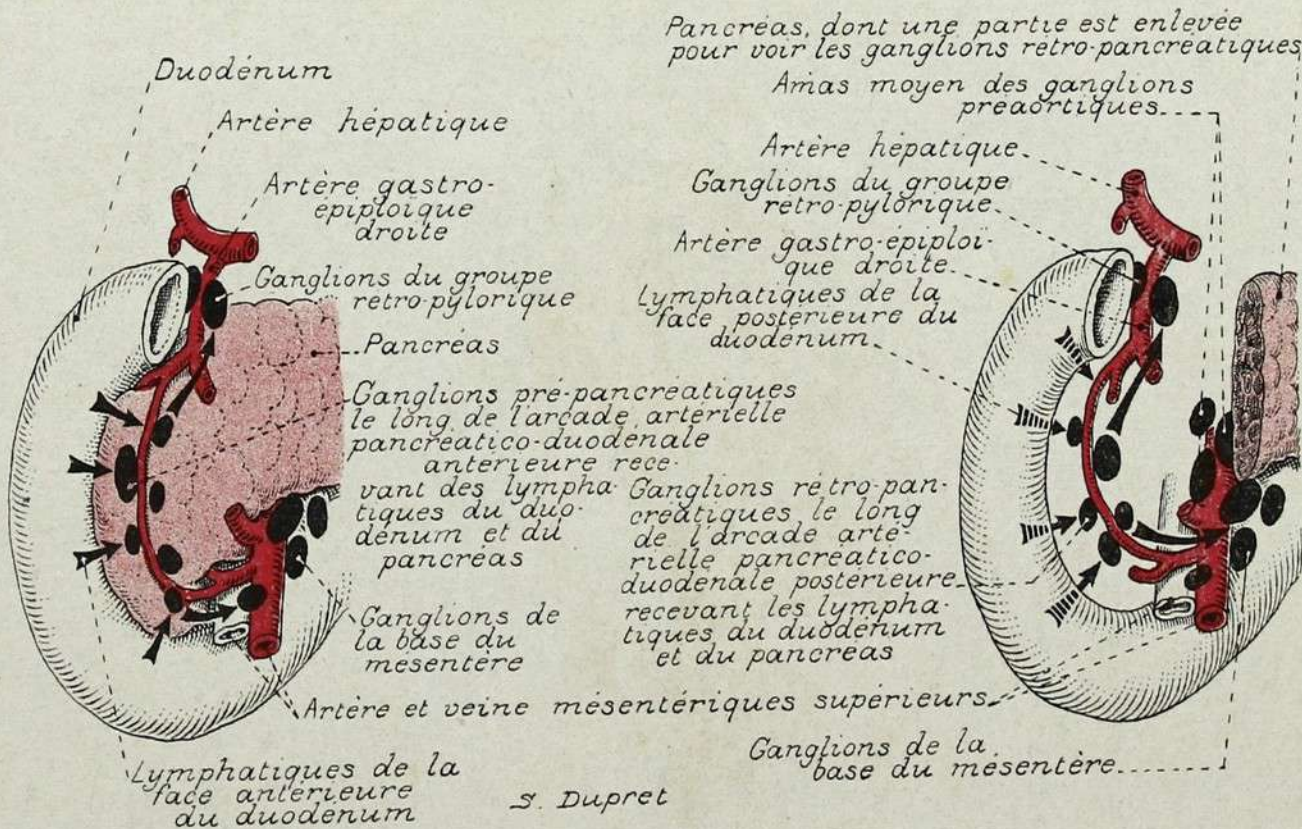 Duodénum
Artère hépatique
Artère gastro-
épiploïque
droite
Ganglions du groupe
rétro-pylorique
Pancréas
Ganglions pré-pancréatiques
le long de l'arcade artérielle
pancréatico-duodénale
antérieure rece-
vant des lympha-
tiques du duo-
dénum et du
pancréas
Ganglions de
la base du
mésentère
Artère et veine mésentériques supérieurs
Lymphatiques de la
face antérieure
du duodénum
S. Dupret
Pancréas, dont une partie est enlevée
pour voir les ganglions rétro-pancréatiques
Amas moyen des ganglions
préaortiques
Artère hépatique
Ganglions du groupe
rétro-pylorique
Artère gastro-épiploï-
que droite
Lymphatiques de la
face postérieure du
duodénum
Ganglions rétro-pan-
créatiques le long
de l'arcade arté-
rielle pancréatico-
duodénale postérieure
recevant les lympha-
tiques du duodénum
et du pancréas
Ganglions de la
base du mésentère